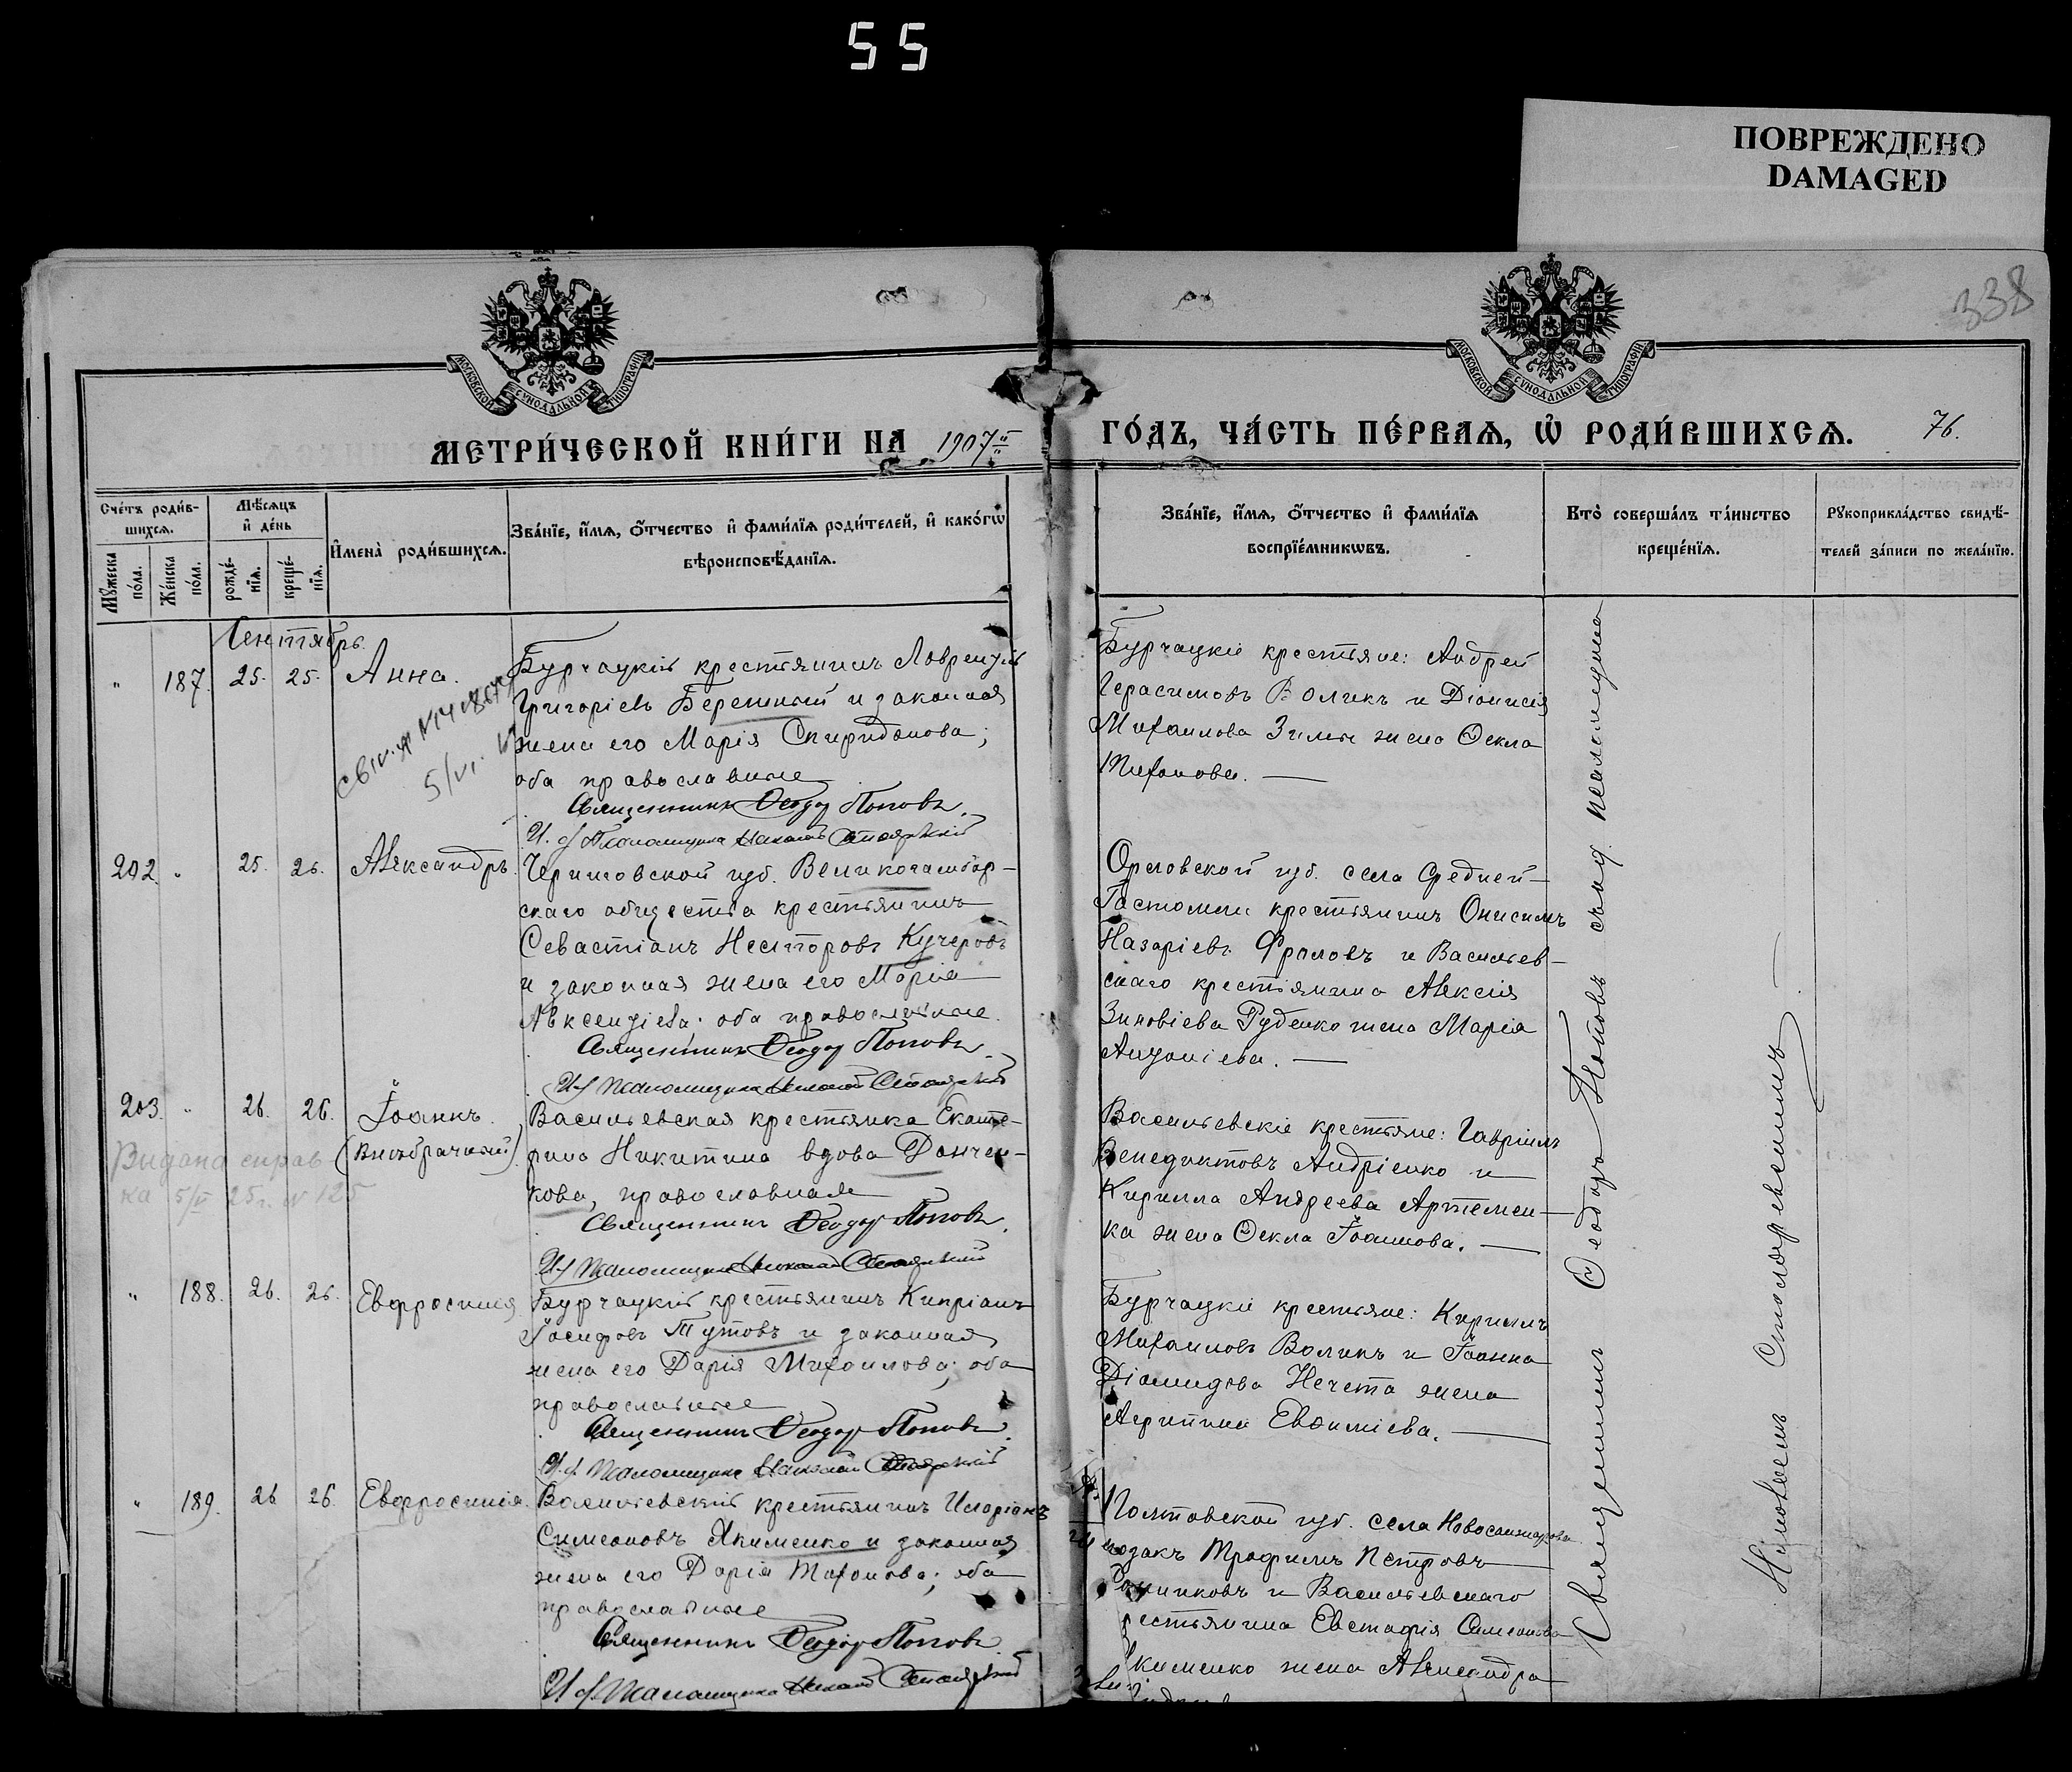 55
ПОВРЕЖДЕНО
DAMAGED
338
МОСКОВСКОЙ СУНОДАЛЬНОЙ ТИПОГРАФІИ
МОСКОВСКОЙ СУНОДАЛЬНОЙ ТИПОГРАФІИ
МЕТРИ́ЧЕСКОЙ КНИ́ГИ НА 1907й
ГО́ДЪ, ЧА́СТЬ ПЕ́РВАЯ, Ѡ҆ РОДИ́ВШИХСЯ.
76.
Сче́тъ роди́в-
шихся.
Мѣ́сяцъ
и҆ де́нь
Мꙋ́жеска
по́ла.
Же́нска
по́ла.
рожде́-
нїя.
креще́-
нїя.
И҆мена̀ роди́вшихся.
Зва́нїе, и҆́мя, ѻ҆́тчество и҆ фами́лїя роди́телей, и҆ како́гѡ
вѣроисповѣ́данїя.
Зва́нїе, и҆́мя, ѻ҆́тчество и҆ фами́лїя
воспрїе́мникѡвъ.
Кто̀ соверша́лъ та́инство
креще́нїя.
Рꙋкоприкла́дство свидѣ́-
телей за́писи по жела́нїю.
Сентябрь.
" 187. 25. 25. Анна.
Бурчацкій крестьянинъ Лаврентій
Григоріевъ Бережный и законная
жена его Марія Спиридонова;
оба православные
Священникъ Ѳеодоръ Поповъ.
И. д. Псаломщика Николай
5/VI.
Бурчацкіе крестьяне: Андрей
Герасимовъ Воликъ и Діонисія
Михаилова Зимы жена Ѳекла
Тихонова.
202. " 25. 26. Александръ.
Черниговской губ. Великосамбор-
скаго общества крестьянинъ
Севастіанъ Несторовъ Кучеровъ
и законная жена его Марія
Авксентіева; оба православные.
Священникъ Ѳеодоръ Поповъ.
И. д. Псаломщика Николай
Орловской губ. села Средней-
крестьянинъ Онисимъ
Назаріевъ Фроловъ и Васильев-
скаго крестьянина Алексія
Зиновіева Руденко жена Марія
Антоніева.
203. " 26. 26. Іоаннъ.
(Внебрачный)
Видана справ
ка 5/V 25 г. № 125
Васильевская крестьянка Екате-
рина Никитина вдова Данчен-
кова, православная
Священникъ Ѳеодоръ Поповъ.
И. д. Псаломщика Николай
Васильевскіе крестьяне: Гавріилъ
Венедиктовъ Андріенко и
Кирилла Андреева Артемен-
ка жена Ѳекла Іоаннова.
" 188. 26. 26. Евфросинія
Бурчацкій крестьянинъ Кипріанъ
Іосифовъ Тутовъ и законная
жена его Дарія Михаилова; оба
православные
Священникъ Ѳеодоръ Поповъ.
И. д. Псаломщика Николай
Бурчацкіе крестьяне: Кириллъ
Михаиловъ Воликъ и Іоанна
Діомидова Нечета жена
Агрипина Евѳиміева.
" 189. 26 26. Евфросинія.
Васильевскій крестьянинъ Иларіонъ
Симеоновъ Якименко и законная
жена его Дарія Тихонова; оба
православные
Священникъ Ѳеодоръ Поповъ
И. д. Псаломщика Николай
Полтавской губ. села
козакъ Трофимъ Петровъ
и Васильевскаго
рестьянина Евстафія Симеонова
кименко жена Александра
Священникъ Ѳеодоръ Поповъ съ и. д. псаломщика
Николаемъ